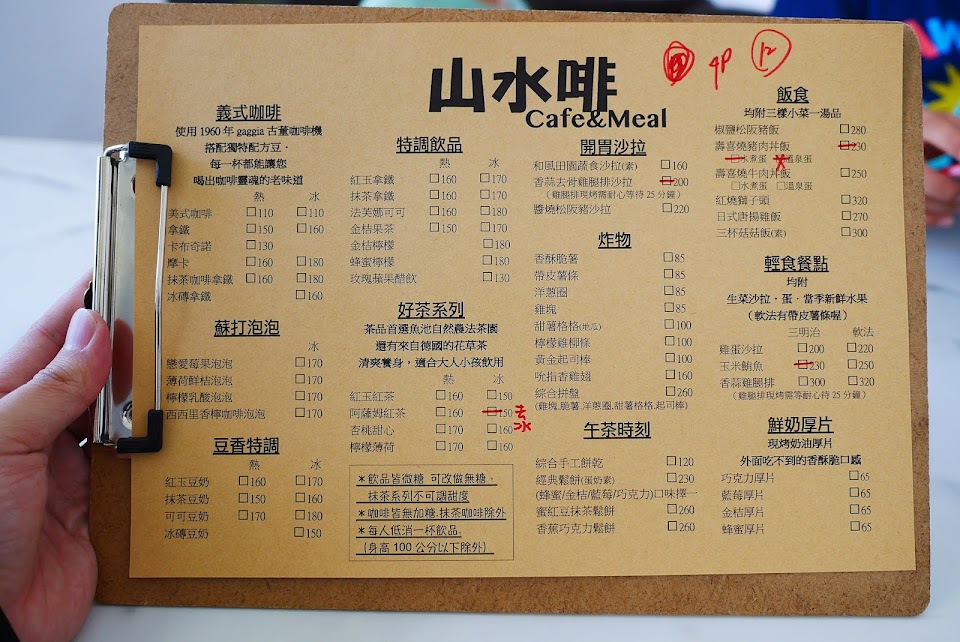 山水啡
Cafe&Meal
4P
12
義式咖啡
使用1960年gaggia古董咖啡機
搭配獨特配方豆.
每一杯都能讓您
喝出咖啡靈魂的老味道
熱 冰
美式咖啡 □110 □110
拿鐵 □150 □160
卡布奇諾 □130
摩卡 □160 □180
抹茶咖啡拿鐵 □160 □180
冰磚拿鐵 □160
蘇打泡泡
冰
戀愛莓果泡泡 □170
薄荷鮮桔泡泡 □170
檸檬乳酸泡泡 □170
西西里香檸咖啡泡泡 □170
豆香特調
熱 冰
紅玉豆奶 □160 □170
抹茶豆奶 □150 □160
可可豆奶 □170 □180
冰磚豆奶 □150
特調飲品
熱 冰
紅玉拿鐵 □160 □170
抹茶拿鐵 □160 □170
法芙娜可可 □160 □180
金桔果茶 □150 □170
金桔檸檬 □180
蜂蜜檸檬 □180
玫瑰蘋果醋飲 □130
好茶系列
茶品首選魚池自然農法茶園
還有來自德國的花草茶
清爽養身，適合大人小孩飲用
熱 冰
紅玉紅茶 □160 □150
阿薩姆紅茶 □160 □150 去冰
杏桃甜心 □170 □160
檸檬薄荷 □170 □160
＊飲品皆微糖 可改做無糖，
抹茶系列不可調甜度
＊咖啡皆無加糖.抹茶咖啡除外
＊每人低消一杯飲品.
(身高100公分以下除外)
開胃沙拉
和風田園蔬食沙拉(素) □160
香蒜去骨雞腿排沙拉 □200
（雞腿排現烤需耐心等待25分鐘）
醬燒松阪豬沙拉 □220
炸物
香酥脆薯 □85
帶皮薯條 □85
洋蔥圈 □85
雞塊 □85
甜薯格格(地瓜) □100
檸檬雞柳條 □100
黃金起司棒 □100
吮指香雞翅 □160
綜合拼盤 □260
(雞塊.脆薯.洋蔥圈.甜薯格格.起司棒)
午茶時刻
綜合手工餅乾 □120
經典鬆餅(蛋奶素) □230
(蜂蜜/金桔/藍莓/巧克力)口味擇一
蜜紅豆抹茶鬆餅 □260
香蕉巧克力鬆餅 □260
飯食
均附三樣小菜一湯品
椒鹽松阪豬飯 □280
壽喜燒豬肉丼飯 □230
□水煮蛋 □溫泉蛋
壽喜燒牛肉丼飯 □250
□水煮蛋 □溫泉蛋
紅燒獅子頭 □320
日式唐揚雞飯 □270
三杯菇菇飯(素) □300
輕食餐點
均附
生菜沙拉．蛋．當季新鮮水果
（軟法有帶皮薯條喔）
三明治 軟法
雞蛋沙拉 □200 □220
玉米鮪魚 □230 □250
香蒜雞腿排 □300 □320
(雞腿排現烤需耐心待25分鐘)
鮮奶厚片
現烤奶油厚片
外面吃不到的香酥脆口感
巧克力厚片 □65
藍莓厚片 □65
金桔厚片 □65
蜂蜜厚片 □65